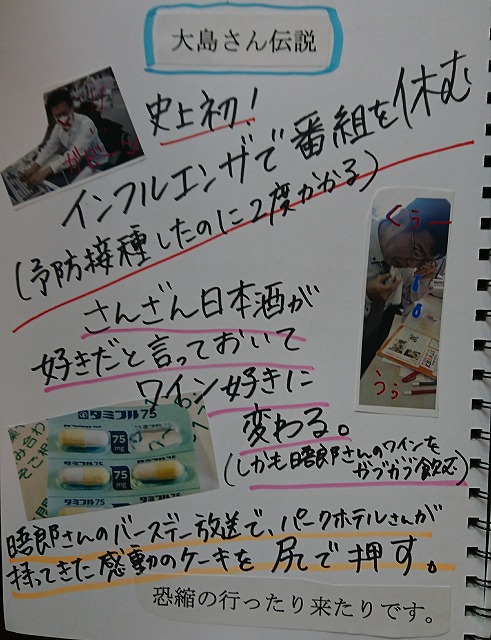 大島さん伝説
史上初!
インフルエンザで番組を休む
(予防接種したのに2度かかる)
くぅー
うぅ
さんざん日本酒が
好きだと言っておいて
ワイン好きに
変わる。
(しかも晤郎さんのワインを
ガブガブ飲む)
タミフル75
75
mg
75
mg
タミフル75
晤郎さんのバースデー放送で、パークホテルさんが
持ってきた感動のケーキを尻で押す。
恐縮の行ったり来たりです。